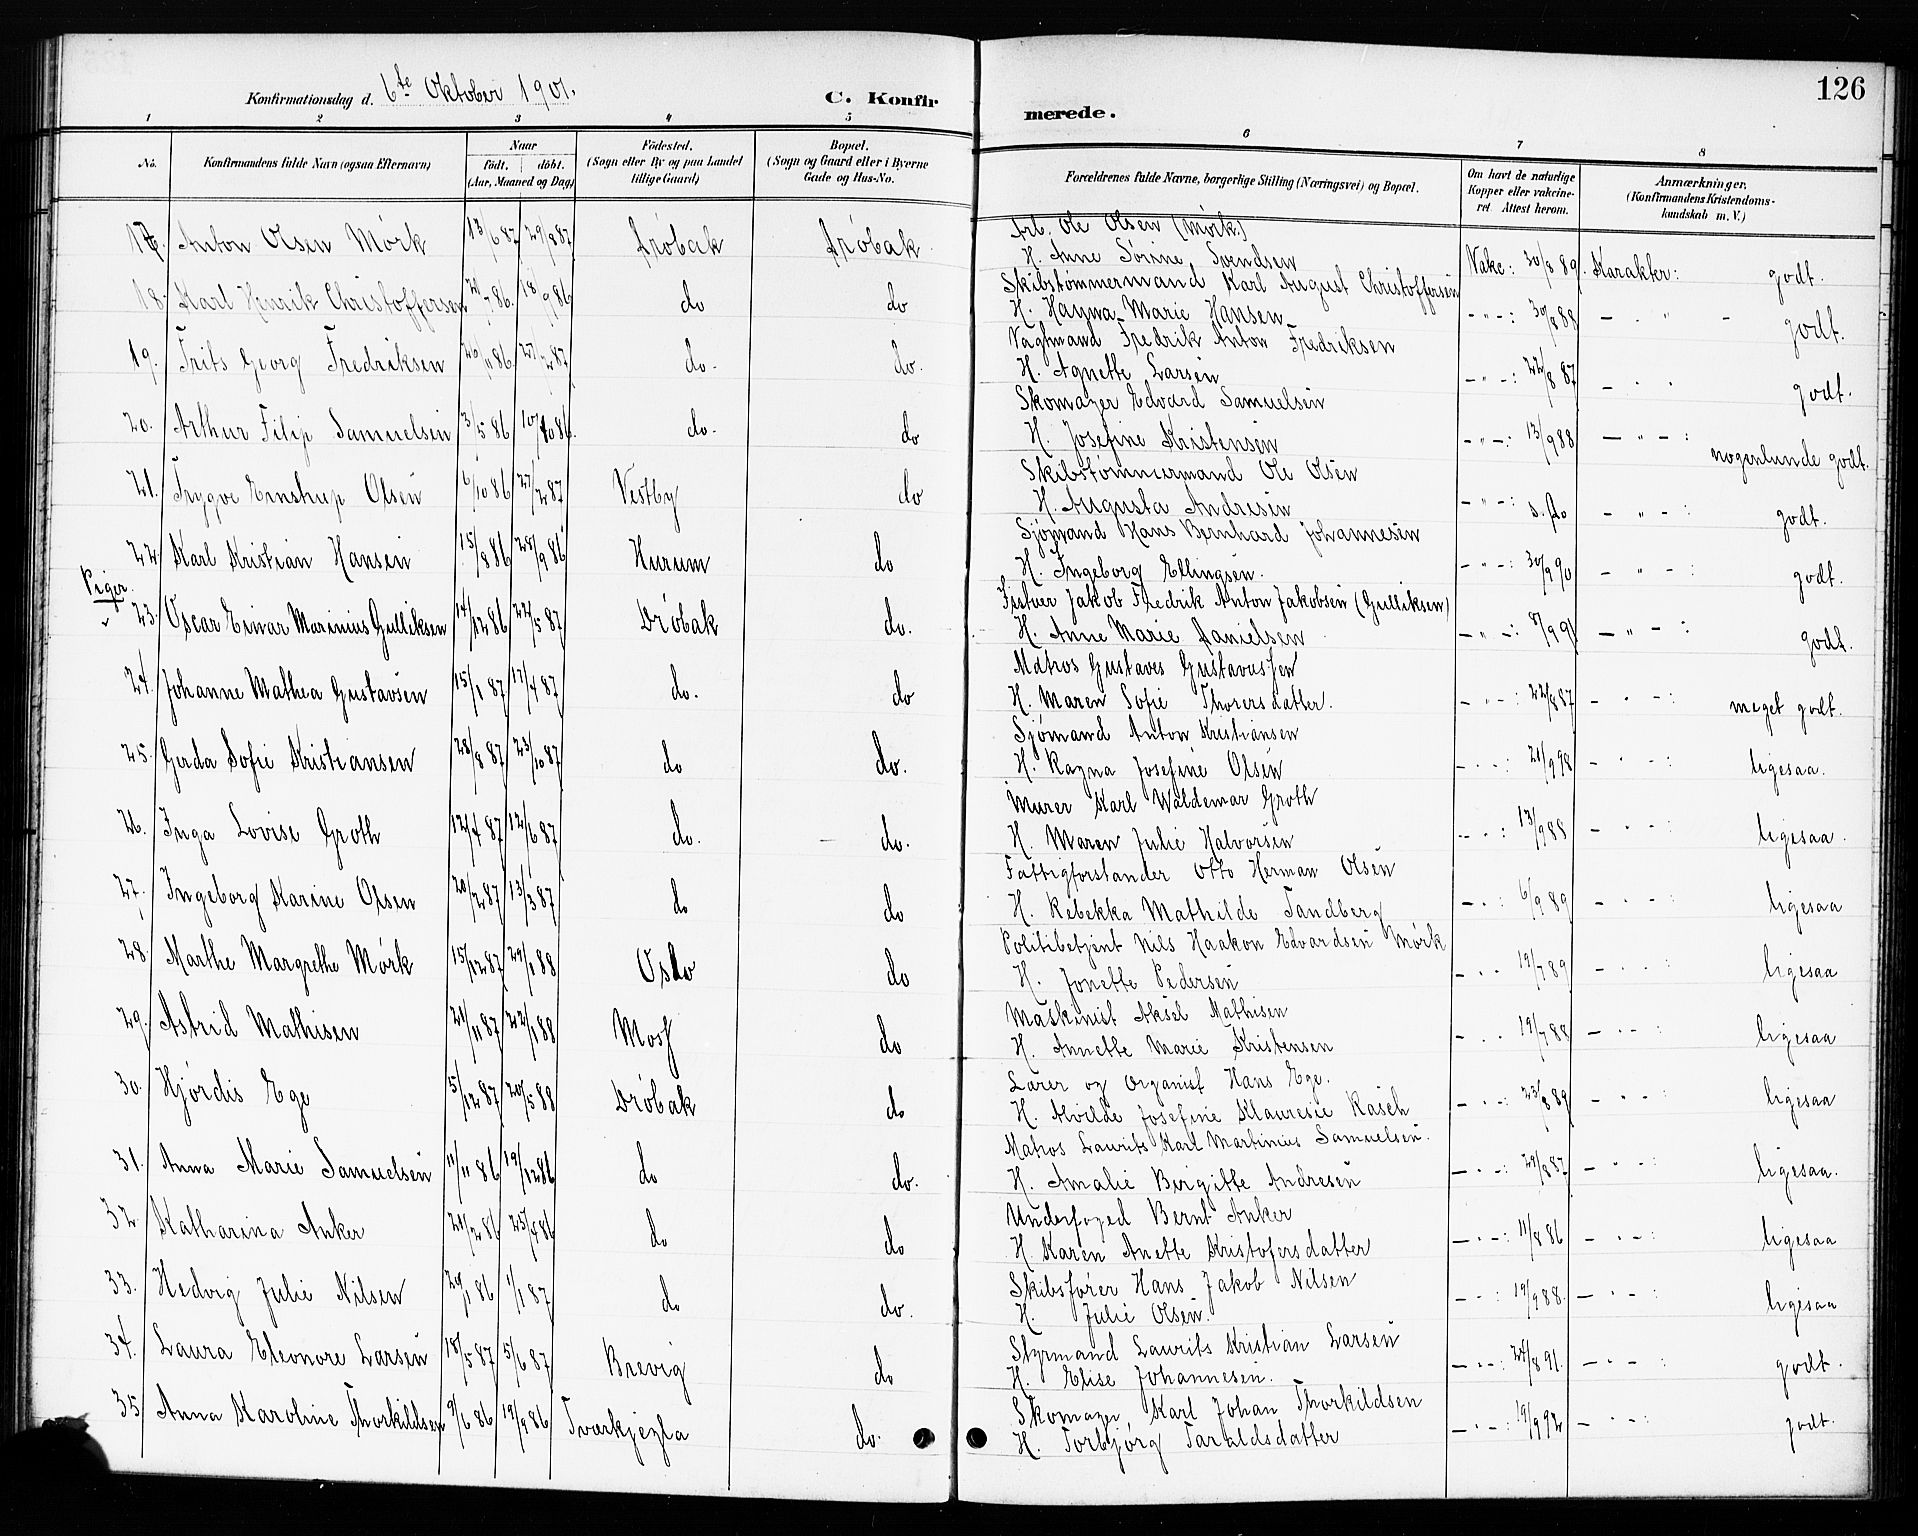 126
Konfirmationsdag d. 6te Oktober 1901.
C. Konfir
merede.
1 2 3 4 5 6 7 8
No. Konfirmandens fulde Navn (ogsaa Efternavn) Naar født. døbt. (Aar, Maaned og Dag) Fødested. (Sogn eller By og paa Landet tillige Gaard) Bopæl. (Sogn og Gaard eller i Byerne Gade og Hus-No. Forældrenes fulde Navne, borgerlige Stilling (Næringsvei) og Bopæl. Om havt de naturlige Kopper eller vakcineret. Attest herom. Anmærkninger. (Konfirmandens Kristendomskundskab m. V.)
17. Anton Olsen Mørk 13/6 87 29/8 87 Drøbak Drøbak Arb. Ole Olsen (Mørk)
H. Anne Sørine Svendsen Vakc: 30/8 89. Karakter: godt.
18. Karl Henrik Christoffersen 21/7 86. 18/9 86 do do Skibstømmermand Karl August Christoffersen
H. Hagna Marie Hansen - " - : 30/8 88 - " - godt.
19. Frits Georg Fredriksen 26/11 86. 27/2 87 do. do. Vagtmand Fredrik Anton Fredriksen
H. Agnette Larsen - " - : 22/8 87 - . . godt.
20. Arthur Filip Samuelsen 3/5 86 10/10 86. do. do Skomager Edvard Samuelsen
H. Josefine Kristensen - " - : 13/9 88 - " - : nogenlunde godt.
21. Trygve Ernstrup Olsen 6/10 86 27/2 87 Vestby do Skibstømmermand Ole Olsen
H. Augusta Andresen - " - : s. D. - " - : godt.
22. Karl Kristian Hansen 15/8 86 28/9 86 Hurum do Sjømand Hans Bernhard Johannesen
H. Ingeborg Ellingsen. - " - : 30/9 90 - " - : godt.
Piger.
23. Oscar Einar Marinius Gulliksen 14/12 86 22/5 87 Drøbak do. Fisker Jakob Fredrik Anton Jakobsen (Gulliksen)
H. Anne Marie Danielsen - " - : 8/9 91 - " - : godt.
24. Johanne Mathea Gustavsen 15/1 87 17/4 87 do. do Matros Gustaves Gustavussen
H. Maren Sofie Thorersdatter. - " - : 22/8 87 - . - : meget godt.
25. Gerda Sofie Kristiansen 28/8 87 23/10 87 do do. Sjømand Anton Kristiansen
H. Ragna Josefine Olsen - . - : 21/9 98 - . - : ligesaa.
26. Inga Lovise Groth 12/4 87 12/6 87 do. do. Murer Karl Waldemar Groth
H. Maren Julie Halvorsen - . . : 13/9 88 - . - : ligesaa.
27. Ingeborg Karine Olsen 20/2 87 13/3 87 do do Fattigforstander Otto Herman Olsen
H. Rebekka Mathilde Tandberg - . : 6/9 89 - . - : ligesaa
28. Marthe Margrethe Mørk 15/12 87 29/1 88 Oslo do Politibetjent Nils Haakon Edvardsen Mørk
H. Jonette Pedersen - . . 19/7 89 - . - : ligesaa
29. Astrid Mathisen 21/11 87 22/1 88 Moss do Maskinist Aksel Mathisen
H. Annette Marie Kristensen - . . 19/7 88 - . - : ligesaa
30. Hjørdis Ege 5/12 87 20/5 88 Drøbak do Lærer og Organist Hans Ege.
H. Alvilde Josefine Klauresie Rasch - . - : 23/8 89 - . - : ligesaa
31. Anna Marie Samuelsen 11/11 86 19/12 86 do do. Matros Laurits Karl Martinius Samuelsen.
H. Amalie Birgitte Andresen - . - : 29/8 87 - . - : ligesaa.
32. Katharina Anker 21/2 86 25/4 86 do do Underfoged Bernt Anker
H. Karen Anette Kristofersdatter - . - : 11/8 86 - . - : ligesaa
33. Hedvig Julie Nilsen 1 86 1/1 87 do do. Skibsfører Hans Jakob Nilsen
H. Julie Olsen. - . : 19/9 88. - . - : ligesaa
34. Laura Eleonore Larsen 18/5 87 5/6 87 Brevig do Styrmand Laurits Kristian Larsen
H. Elise Johannesen. - . - : 24/8 91. - . - : godt.
35 Anna Karoline Thorkildsen 9/6 86 19/9 86 do. Skomager, Karl Johan Thorkildsen
H. Torbjørg Taraldsdatter - . - : 19/9 92 - . - : godt.